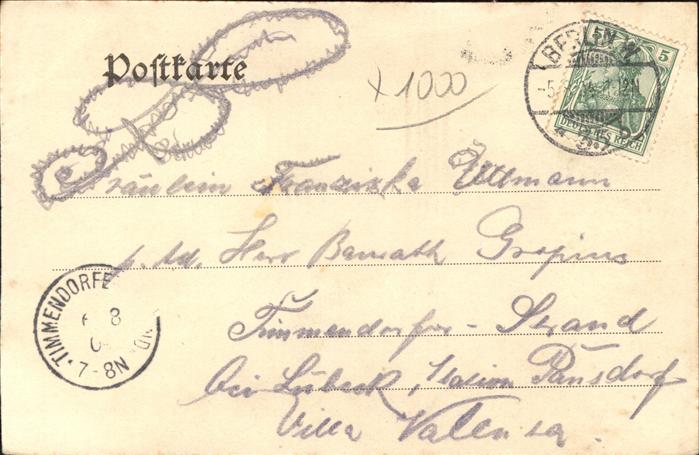 Postkarte
+ 1000
BERLIN W.
5
DEUTSCHES REICH
Fräulein Franziska Uttmann
p. Ad. Herr Baurath Gropius
Timmendorfer - Strand
bei Lübeck, Station Pansdorf
Villa
TIMMENDORFE
6 8
7-8N